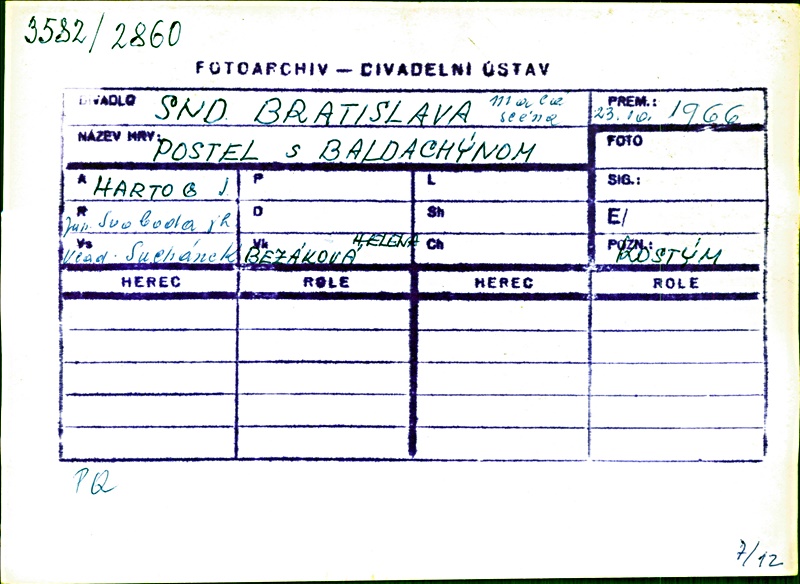 3582/2860
FOTOARCHIV – DIVADELNÍ ÚSTAV
DIVADLO SND. BRATISLAVA malá scéna PREM.: 23. 10. 1966
NÁZEV HRY: POSTEL s BALDACHÝNOM FOTO
A HARTOG J. P L SIG.:
R Svoboda jh D Sh E/
Vs Vlad. Suchánek Vk BEZÁKOVÁ HELENA Ch POZN.: KOSTÝM
HEREC ROLE HEREC ROLE
PQ
7/12